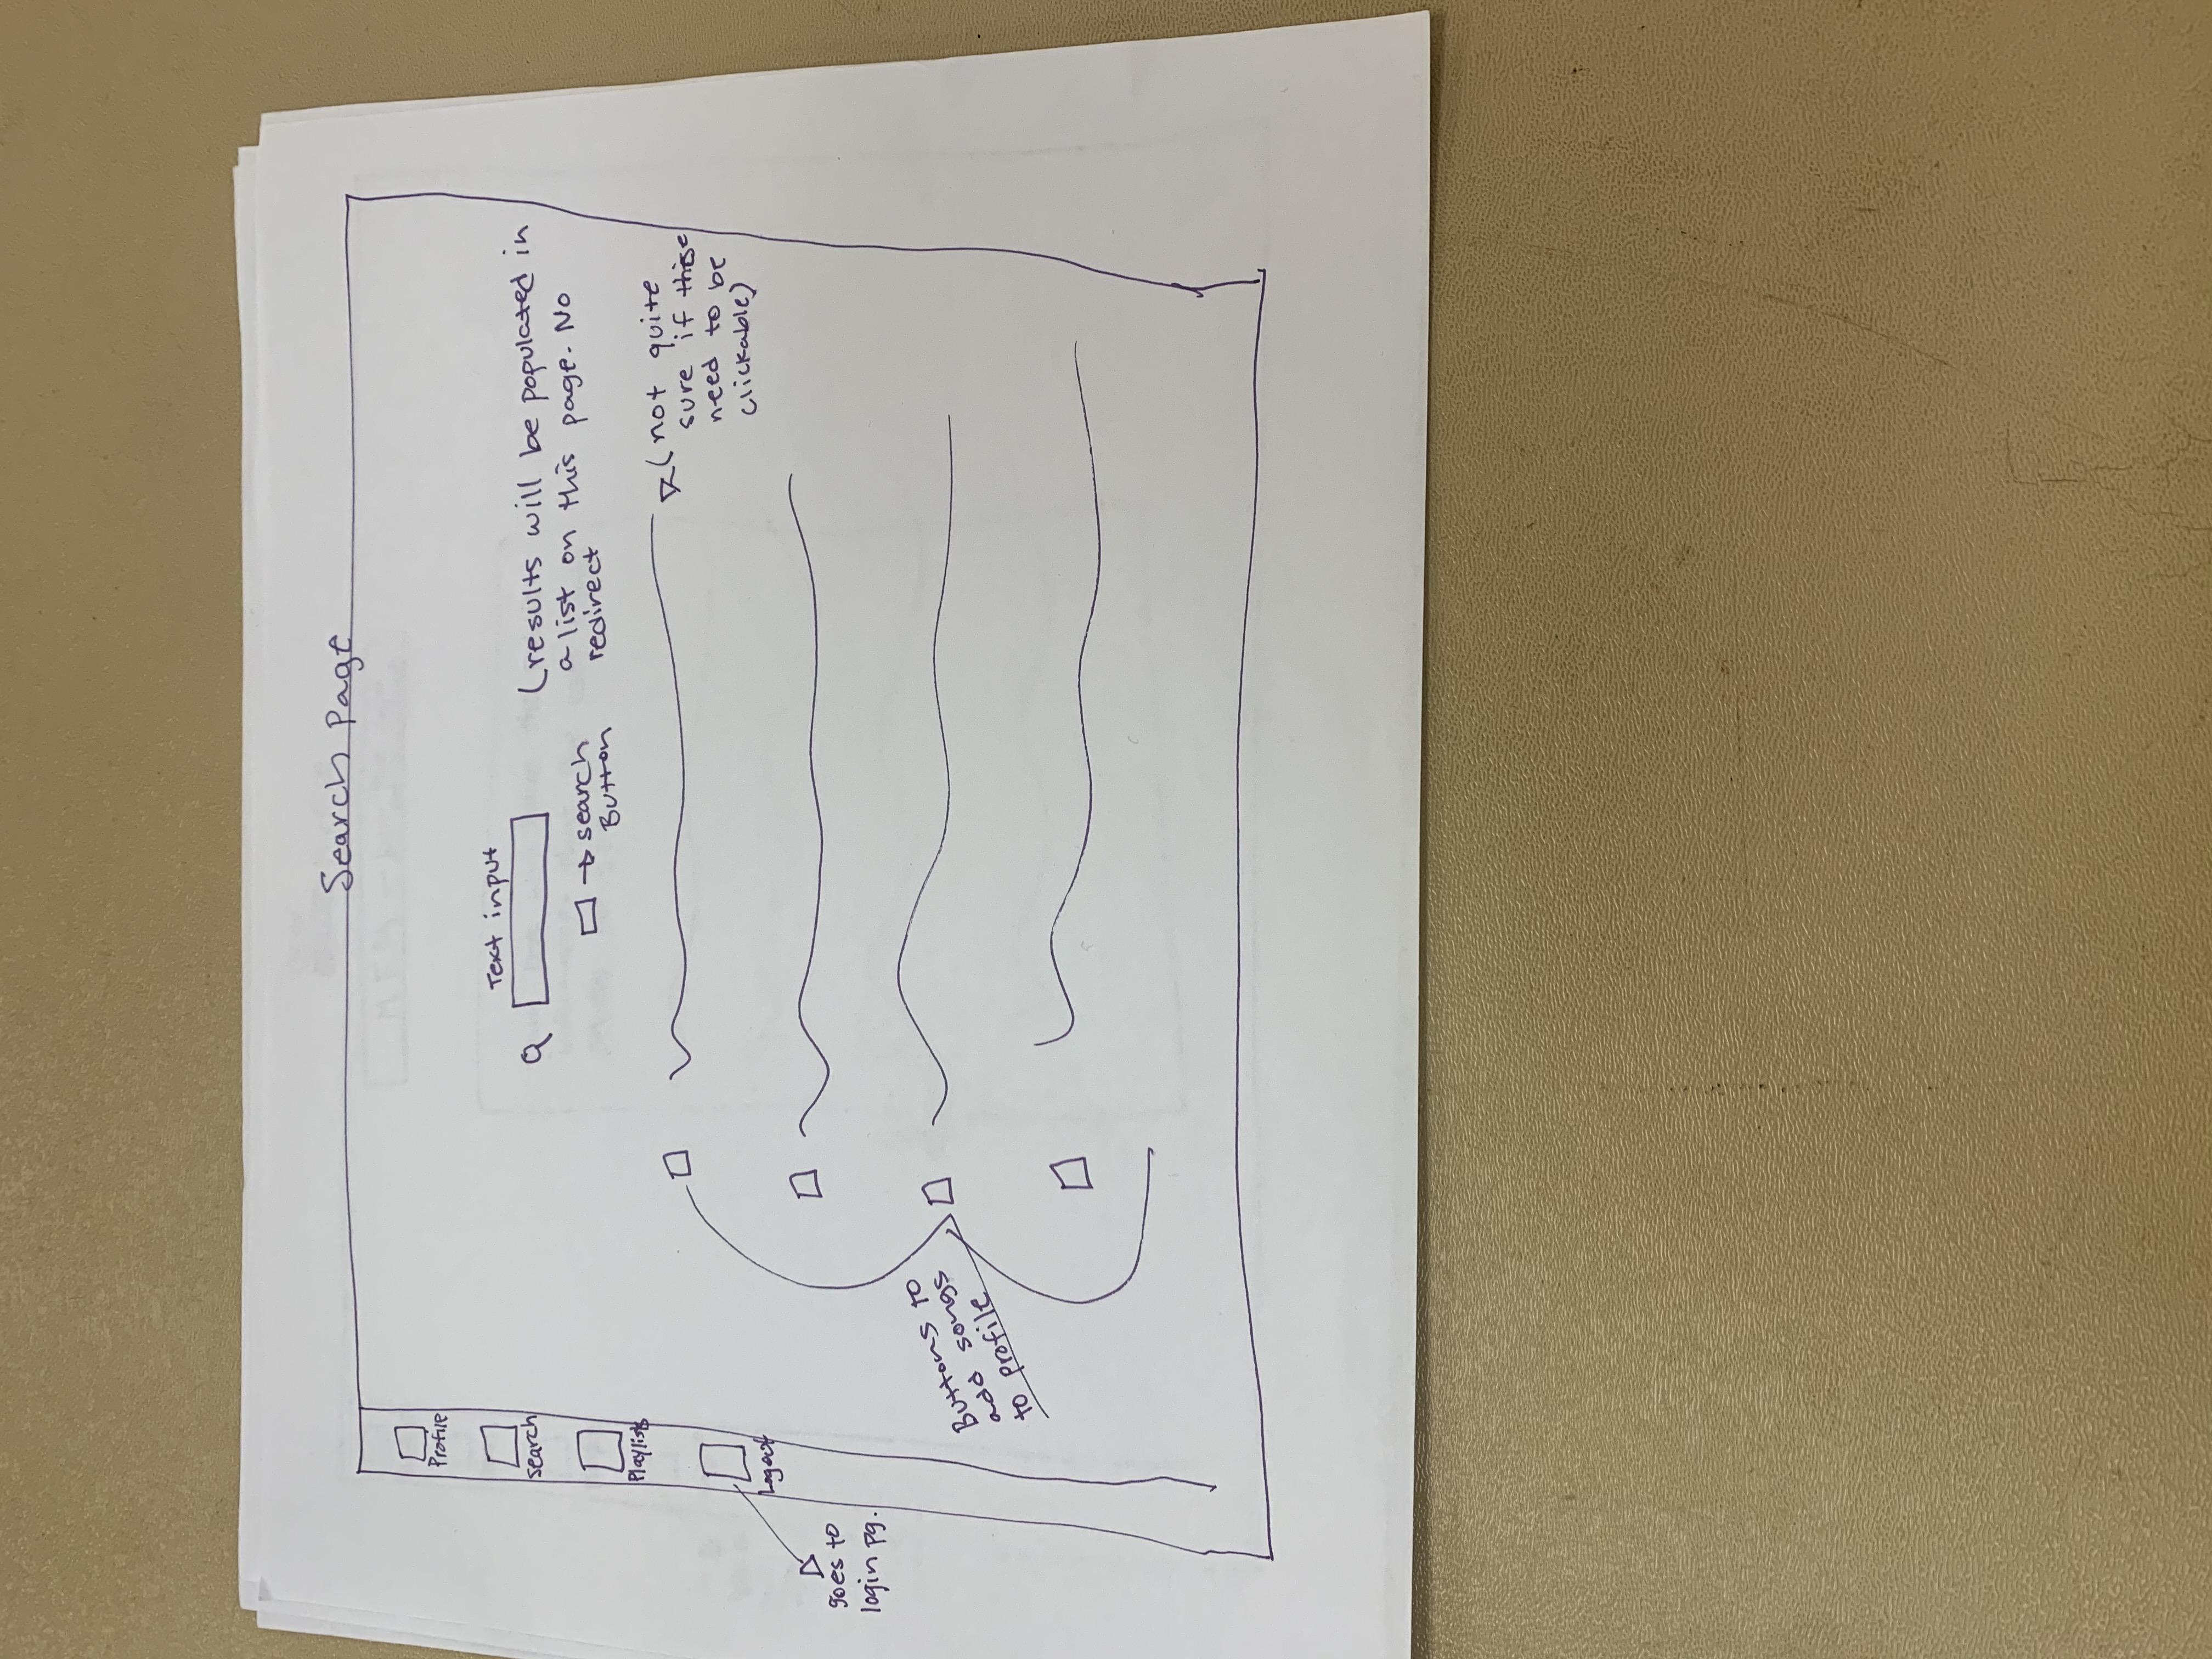 Search Page
Profile
Search
Playlists
Logout
goes to
login pg.
Text input
search
Button
(results will be populated in
a list on this page. No
redirect
(not quite
sure if these
need to be
clickable)
Buttons to
add songs
to profile